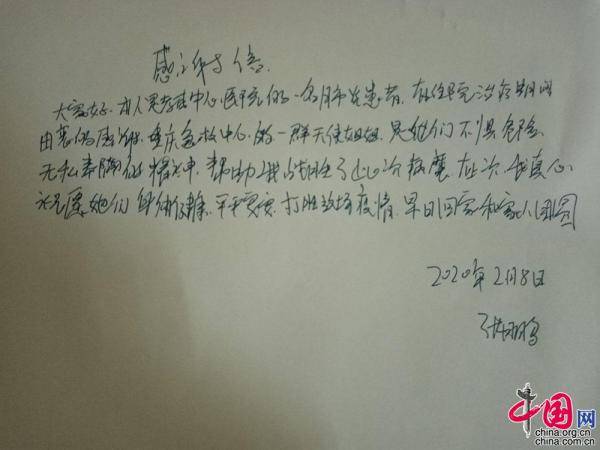 感谢信
大家好,本人是孝感中心医院的一名肺炎患者,在住院治疗期间
由衷的感谢重庆急救中心的一群天使姐姐,是她们不惧危险
无私奉献的精神,帮助我战胜了这次病魔,在次我真心
祝愿她们身体健康,平平安安,打胜这场疫情,早日回家和家人团圆
2020年2月8日
中国网
china.org.cn
china.com.cn